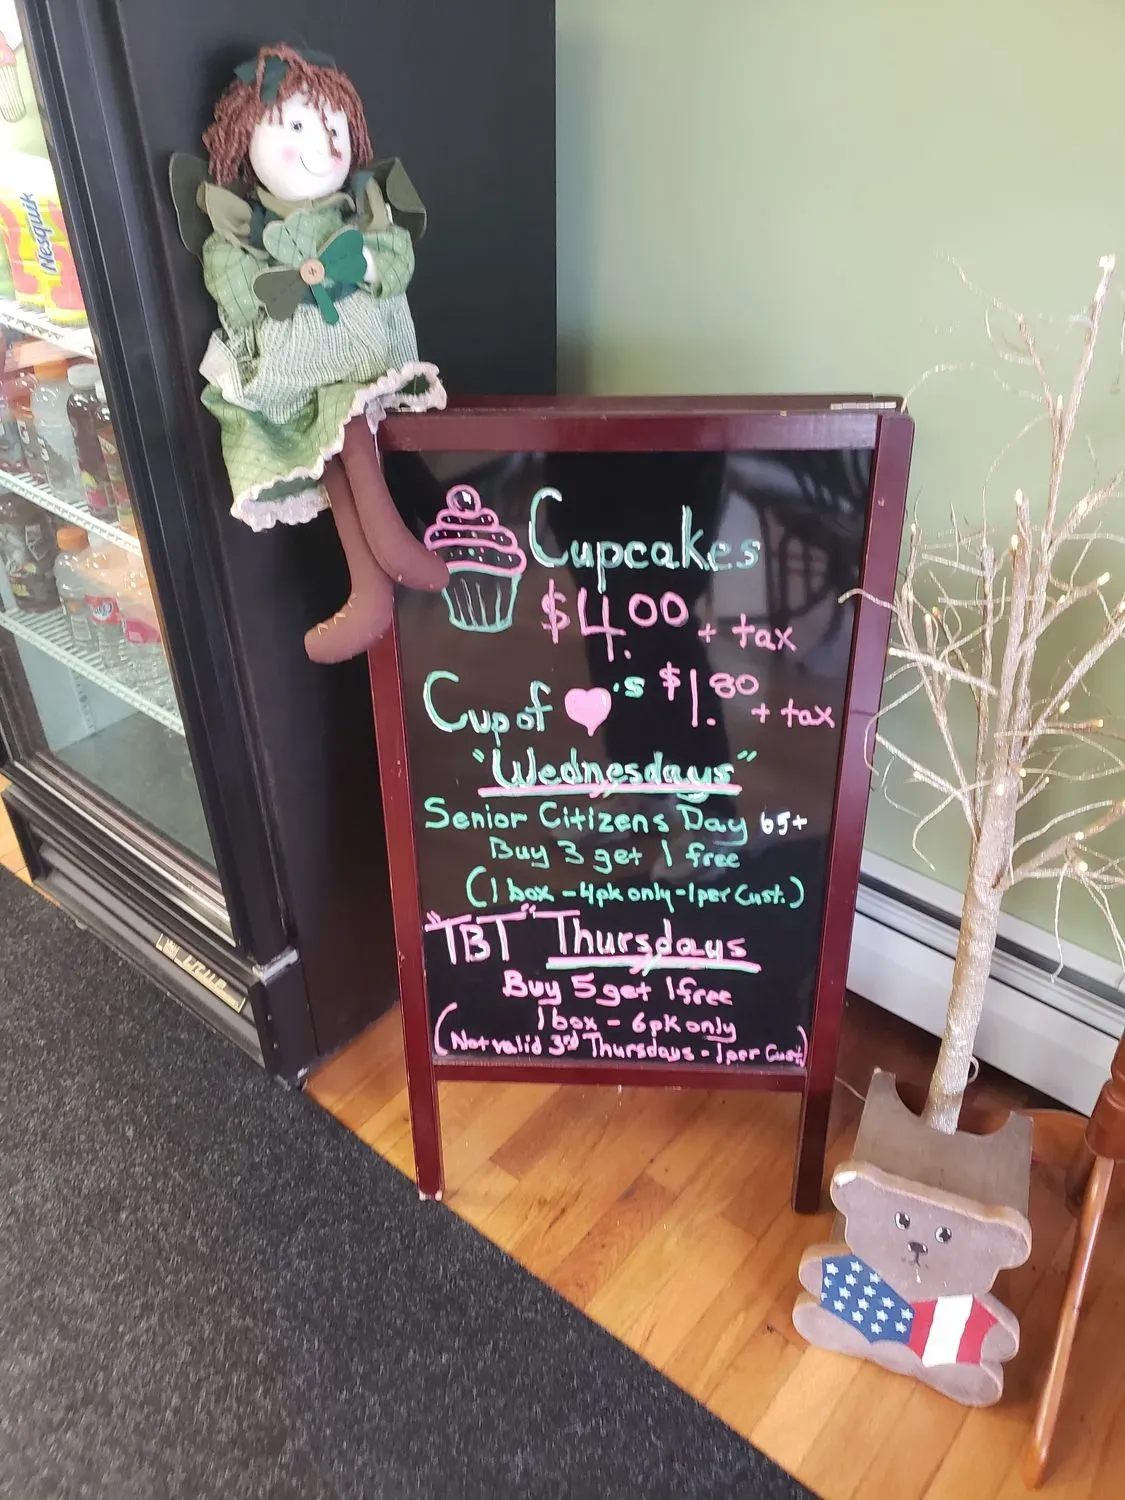 Nesquik
Cupcakes
$4.00 + tax
Cup of ♥'s $1.80 + tax
"Wednesdays"
Senior Citizens Day 65+
Buy 3 get 1 free
(1 box - 4pk only - 1 per Cust.)
"TBT" Thursdays
Buy 5 get 1 free
(1 box - 6pk only
Not valid 3rd Thursdays - 1 per Cust.)